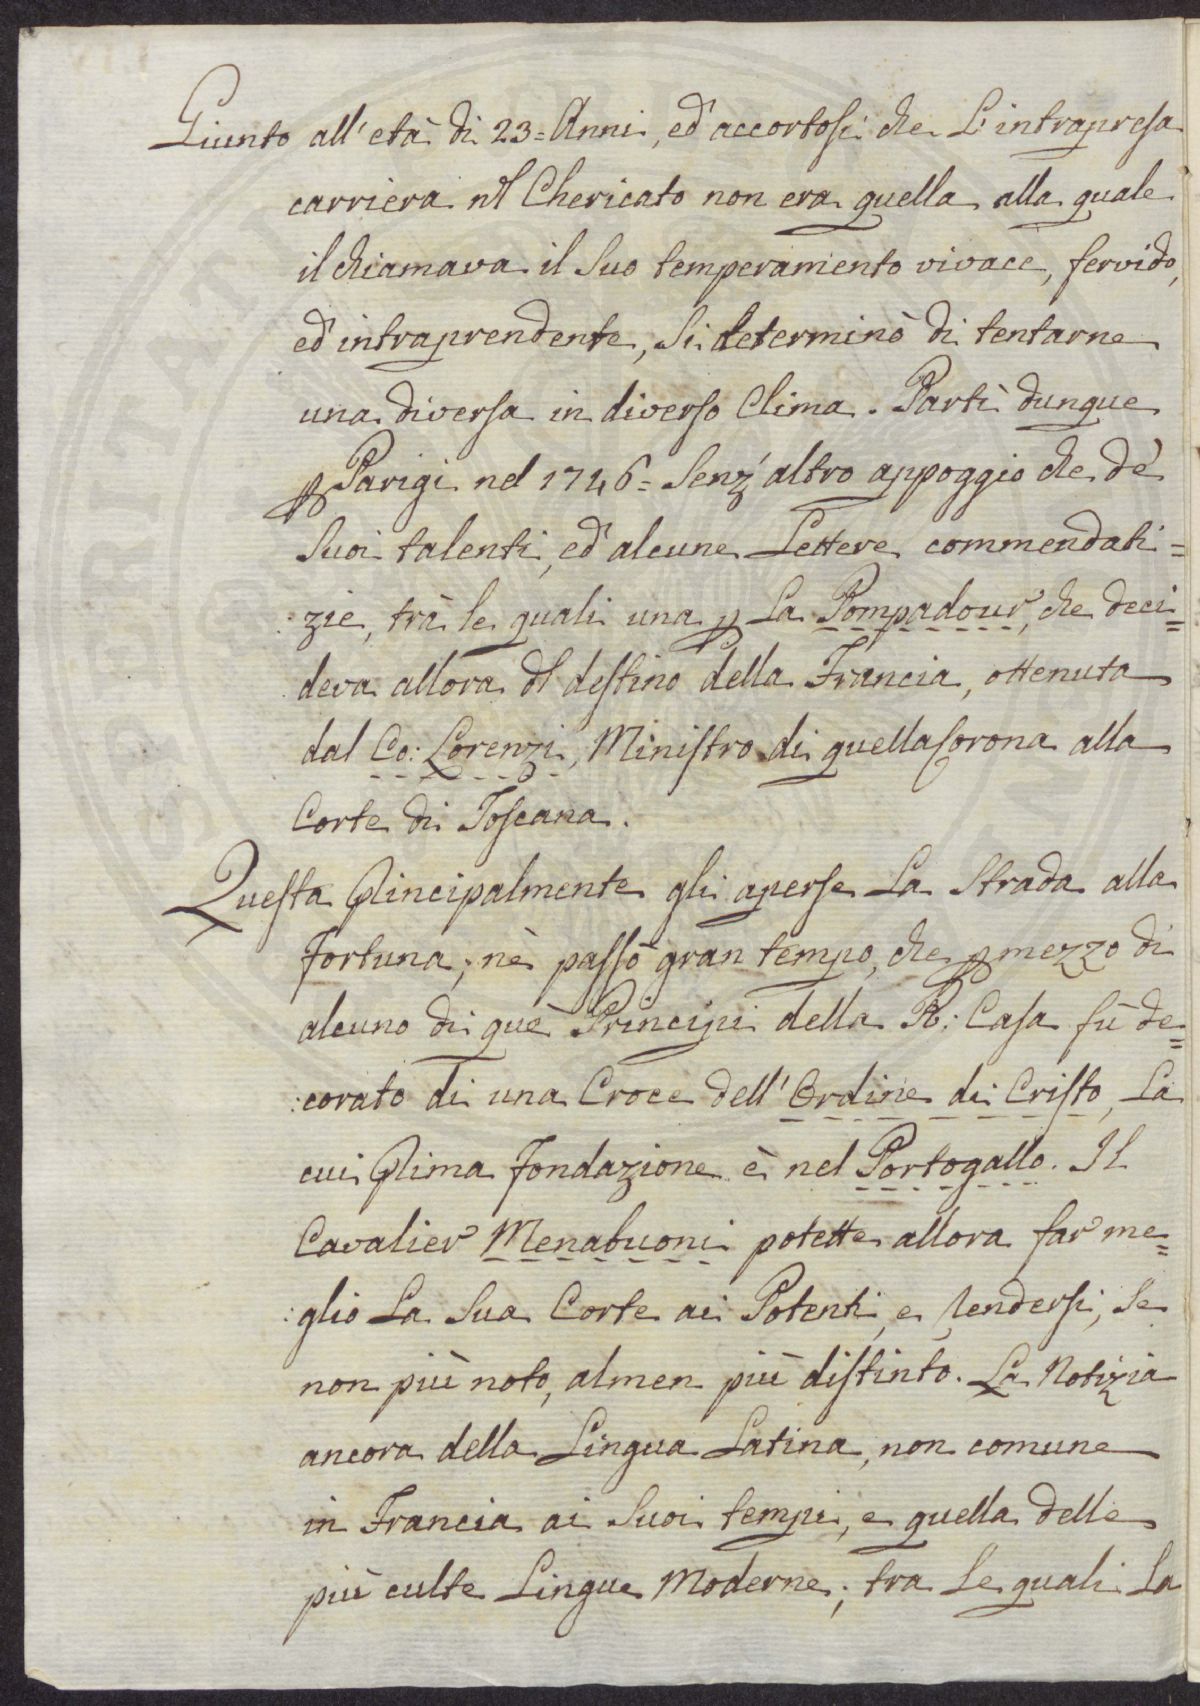 Giunto all'età di 23= Anni, ed' accortosi che L'intrapresa
carriera nl Chericato non era quella alla quale
il chiamava il Suo temperamento vivace, fervido,
ed' intraprendente, Si determinò di tentarne
una diversa in diverso Clima. Partì dunque
p Parigi nel 1746= Senz'altro appoggio che de'
Suoi talenti, ed' alcune Lettere commendati=
:zie, trà le quali una p La Pompadour, che deci=
deva allora dl destino della Francia, ottenuta
dal Co: Lorenzi, Ministro di quella Corona alla
Corte di Toscana.
Questa Pincipalmente gli aperse La Strada alla
fortuna; nè passò gran tempo, che p mezzo di
alcuno di que' Principi della R: Casa fù de=
:corato di una Croce dell'Ordine di Cristo, La
cui Pima fondazione è nel Portogallo. Il
Cavalier Menabuoni potette allora far me=
:glio La Sua Corte ai Potenti, e rendersi, Se
non più noto, almen più distinto. La Notizia
ancora della Lingua Latina, non comune
in Francia ai Suoi tempi, e quella delle
più culte Lingue Moderne; tra Le quali La